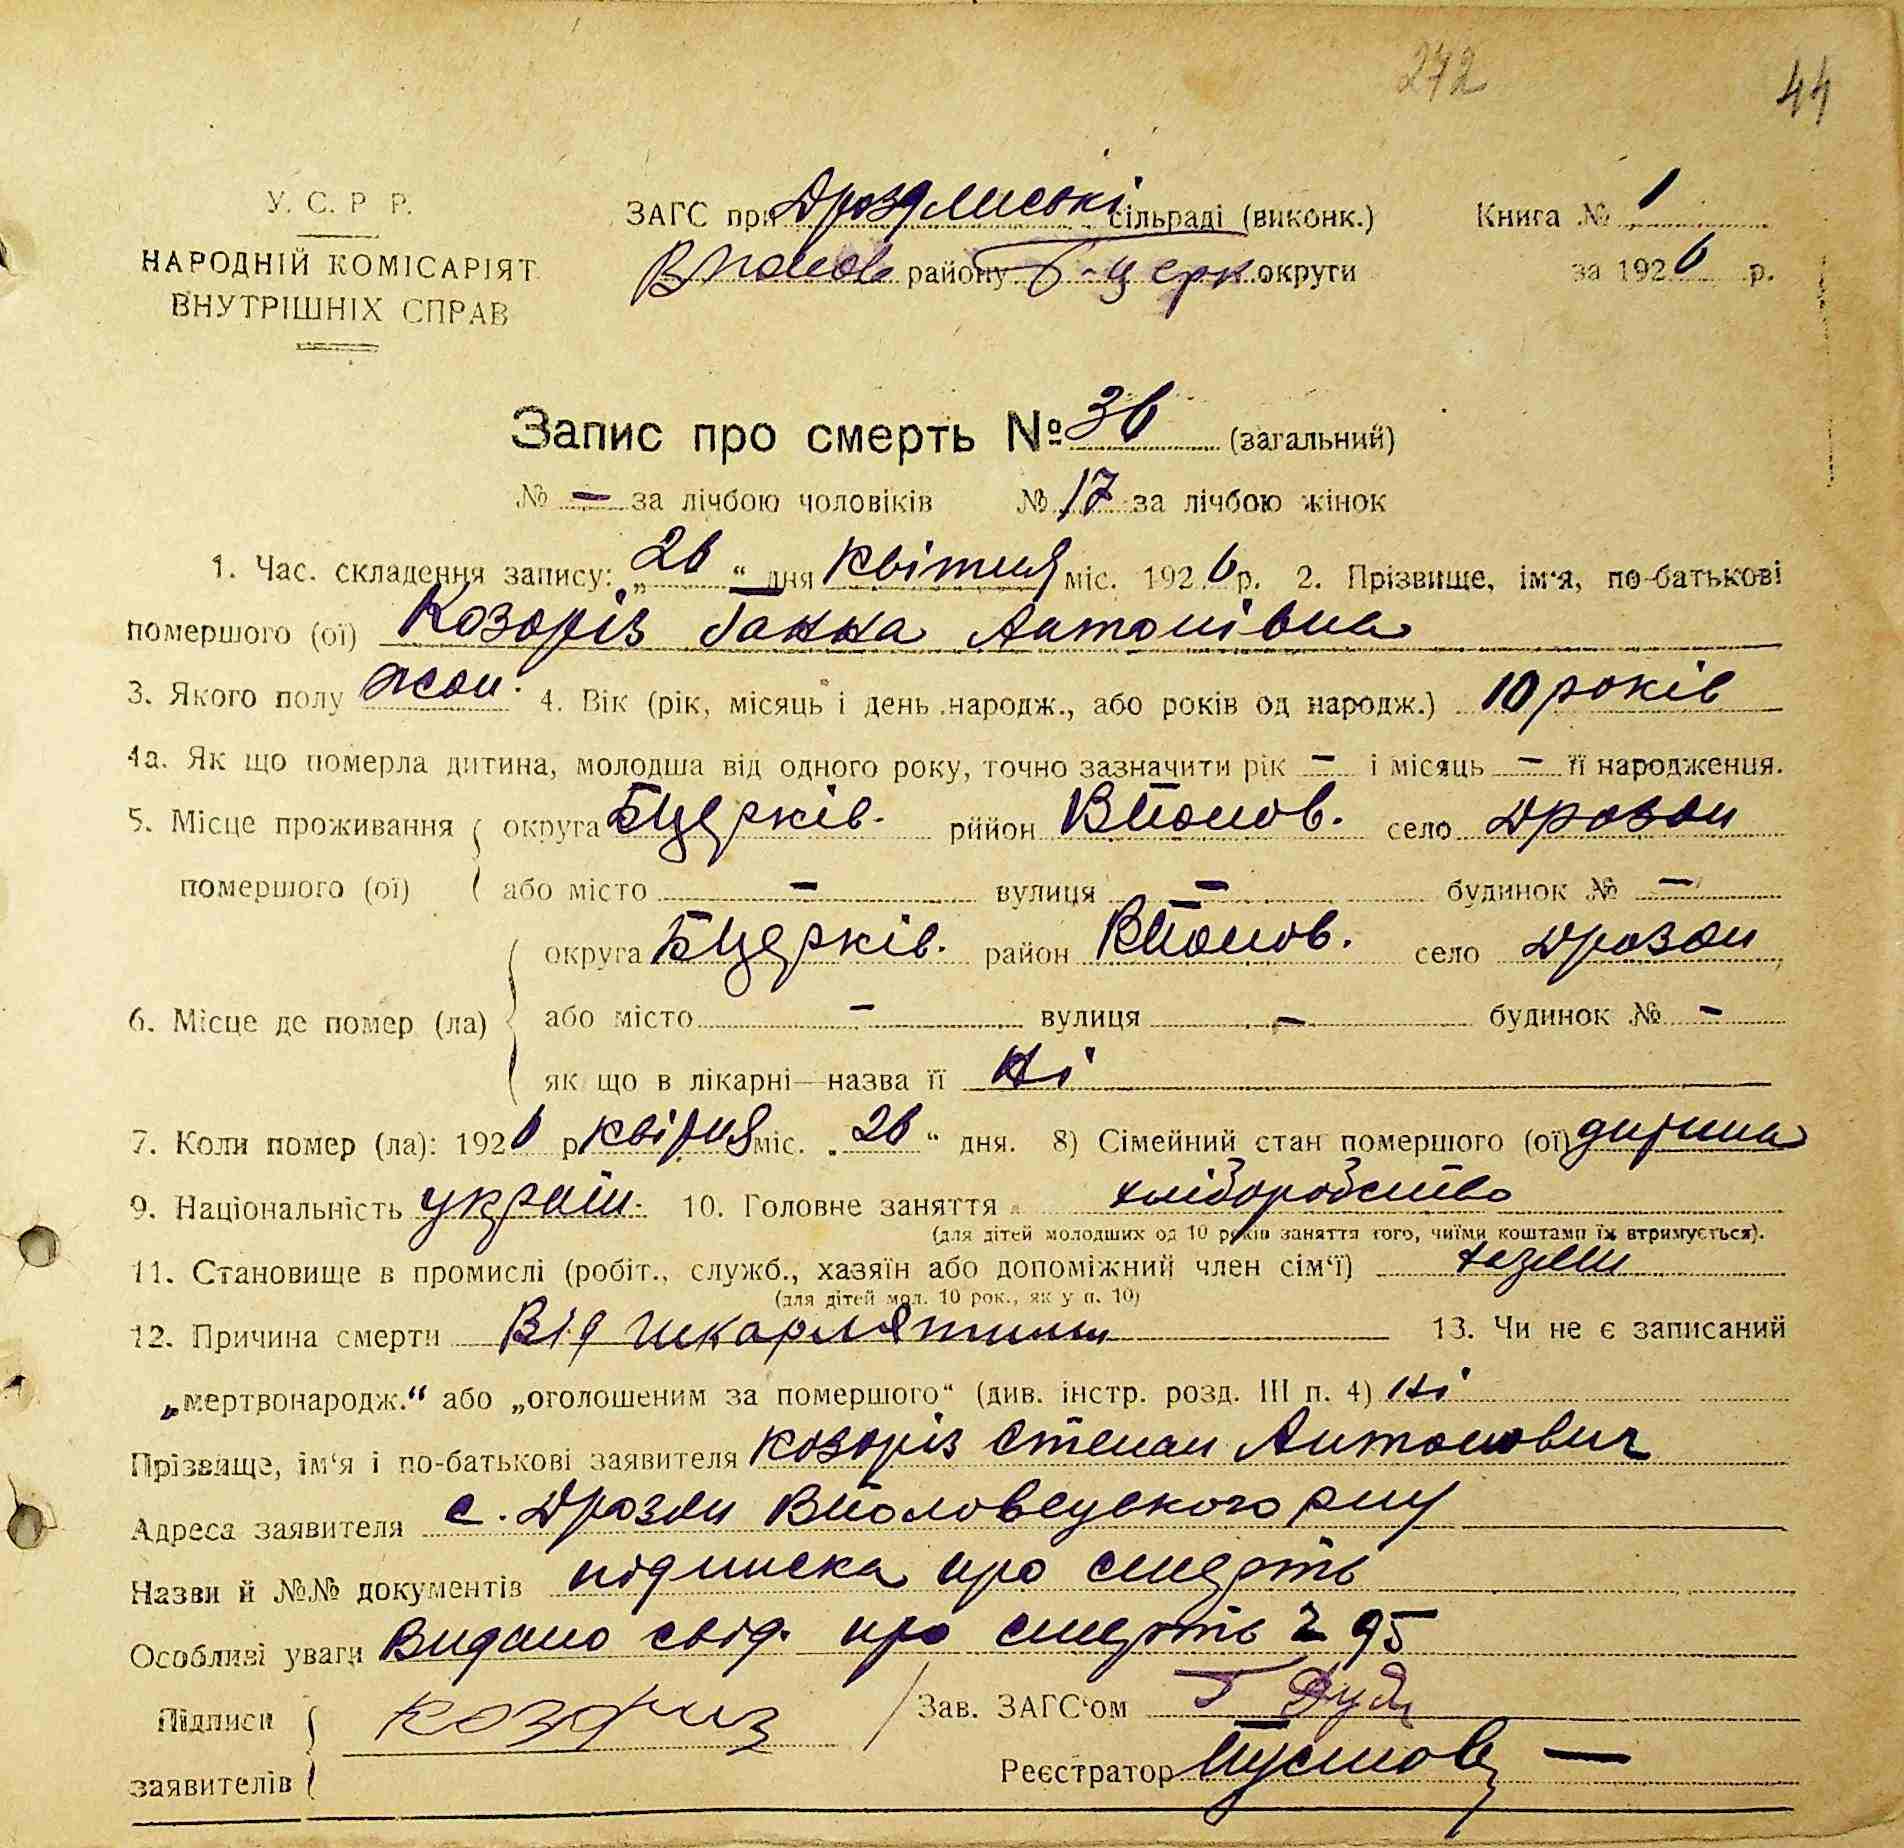 272 44
У. С. Р Р. ЗАГС при Дроздянські сільраді (виконк.) Книга № 1
НАРОДНІЙ КОМІСАРІЯТ району Б-церк округи за 1926 р.
ВНУТРІШНІХ СПРАВ
Запис про смерть № 36 (загальний)
№ — за лічбою чоловіків № 17 за лічбою жінок
1. Час. складення запису: „26“ дня квітня міс. 1926 р. 2. Прізвище, ім‘я, по-батькові
помершого (ої) Козоріз Ганна Антонівна
3. Якого полу жон. 4. Вік (рік, місяць і день народж., або років од народж.) 10 років
4а. Як що померла дитина, молодша від одного року, точно зазначити рік — і місяць — її народження.
5. Місце проживання округа Бцерків. рийон Вполов. село Дрозди
помершого (ої) або місто — вулиця — будинок № —
округа Бцерків. район Вполов. село Дрозди
6. Місце де помер (ла) або місто — вулиця — будинок № —
як що в лікарні—назва її Ні
7. Коли помер (ла): 1926 р квітня міс. „26“ дня. 8) Сімейний стан помершого (ої) дитина
9. Національність україн. 10. Головне заняття хліборобство
(для дітей молодших од 10 років заняття того, чиїми коштами їх втримується).
11. Становище в промислі (робіт., служб., хазяїн або допоміжний член сім‘ї)
(для дітей мол. 10 рок., як у п. 10)
12. Причина смерти Від шкарлятини 13. Чи не є записаний
„мертвонародж.“ або „оголошеним за помершого“ (див. інстр. розд. III п. 4) Ні
Прізвище, ім‘я і по-батькові заявителя Козоріз Степан Антонович
Адреса заявителя с. Дрозди Вполовецького р-ну
Назви й №№ документів підписка про смерть
Особливі уваги Видано свід. про смерть 295
Підписи Козориз Зав. ЗАГС‘ом
заявителів Реєстратор